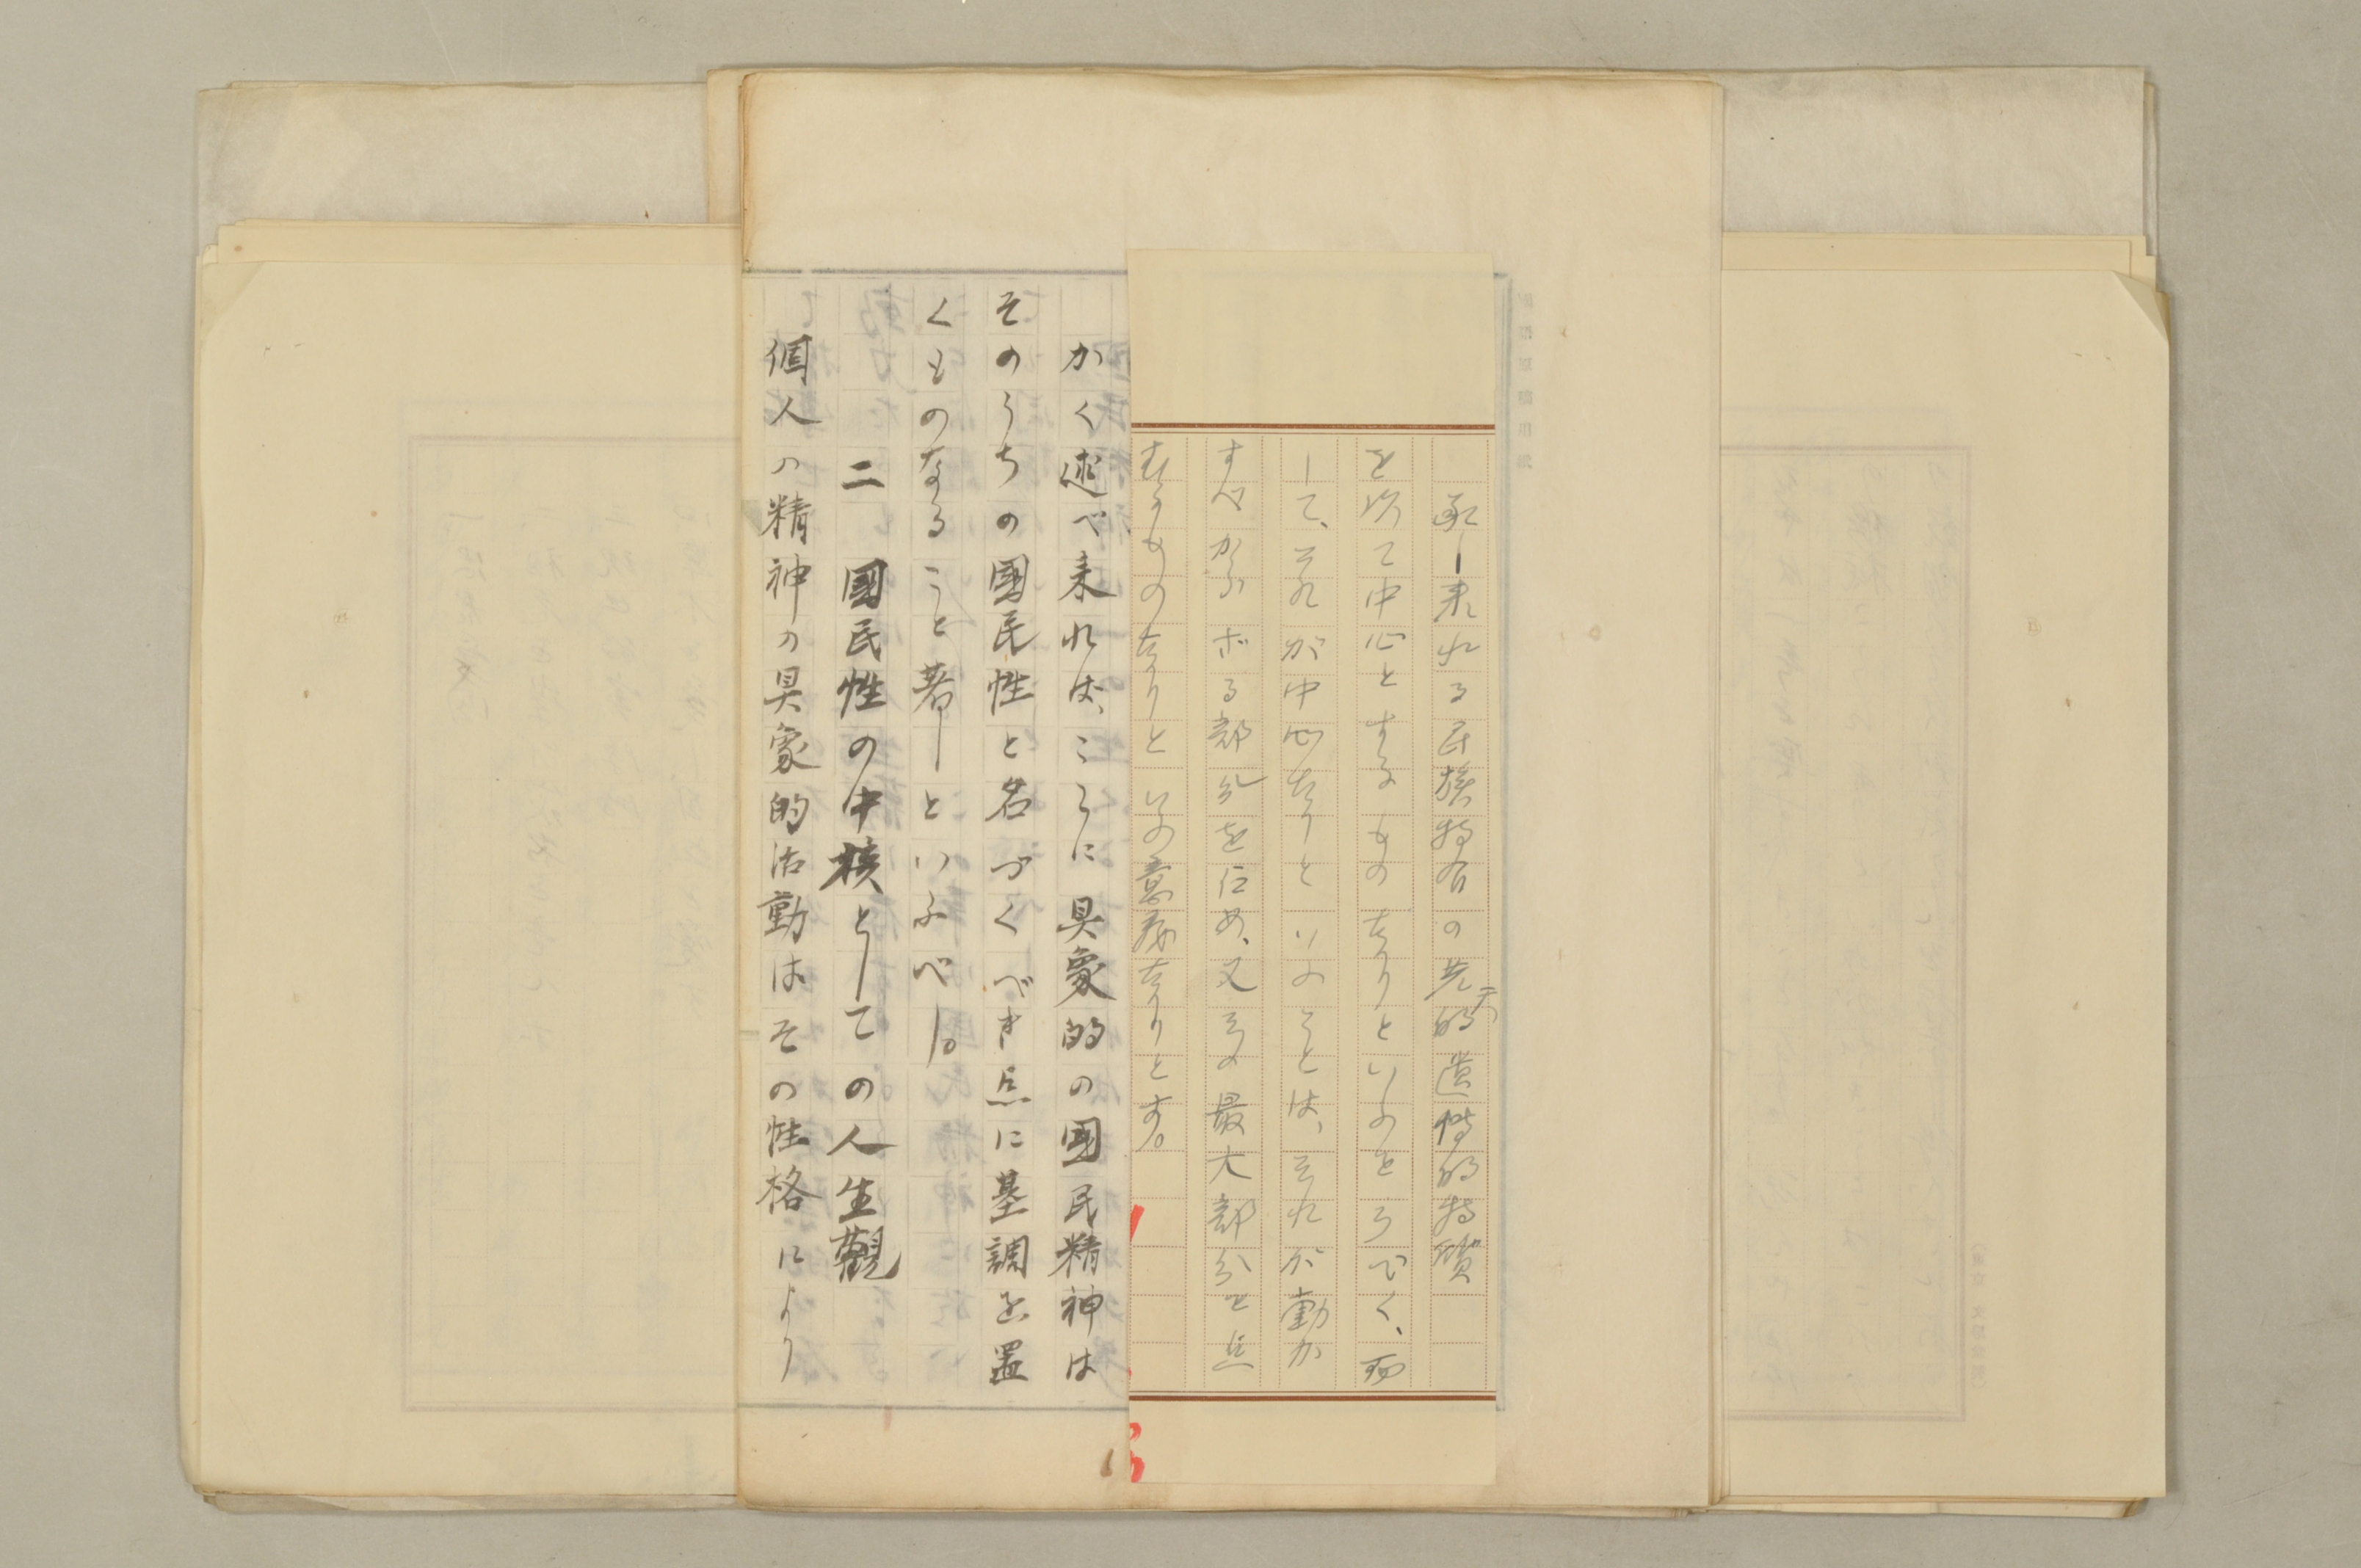 承し来れる民族特有の先天的遺傳的特質
を以て中心とするものなりといふところでく、而
して、それが中心なりといふことは、それが動か
すべからざる部分を占め、又その最大部分を占
むるものなりといふ意義なりとす。
かく述べ来れば、こゝに具象的の國民精神は
そのうちの國民性と名づくべき点に基調を置
くものなること著しといふべし。
二　國民性の中核としての人生觀
個人の精神の具象的活動はその性格により